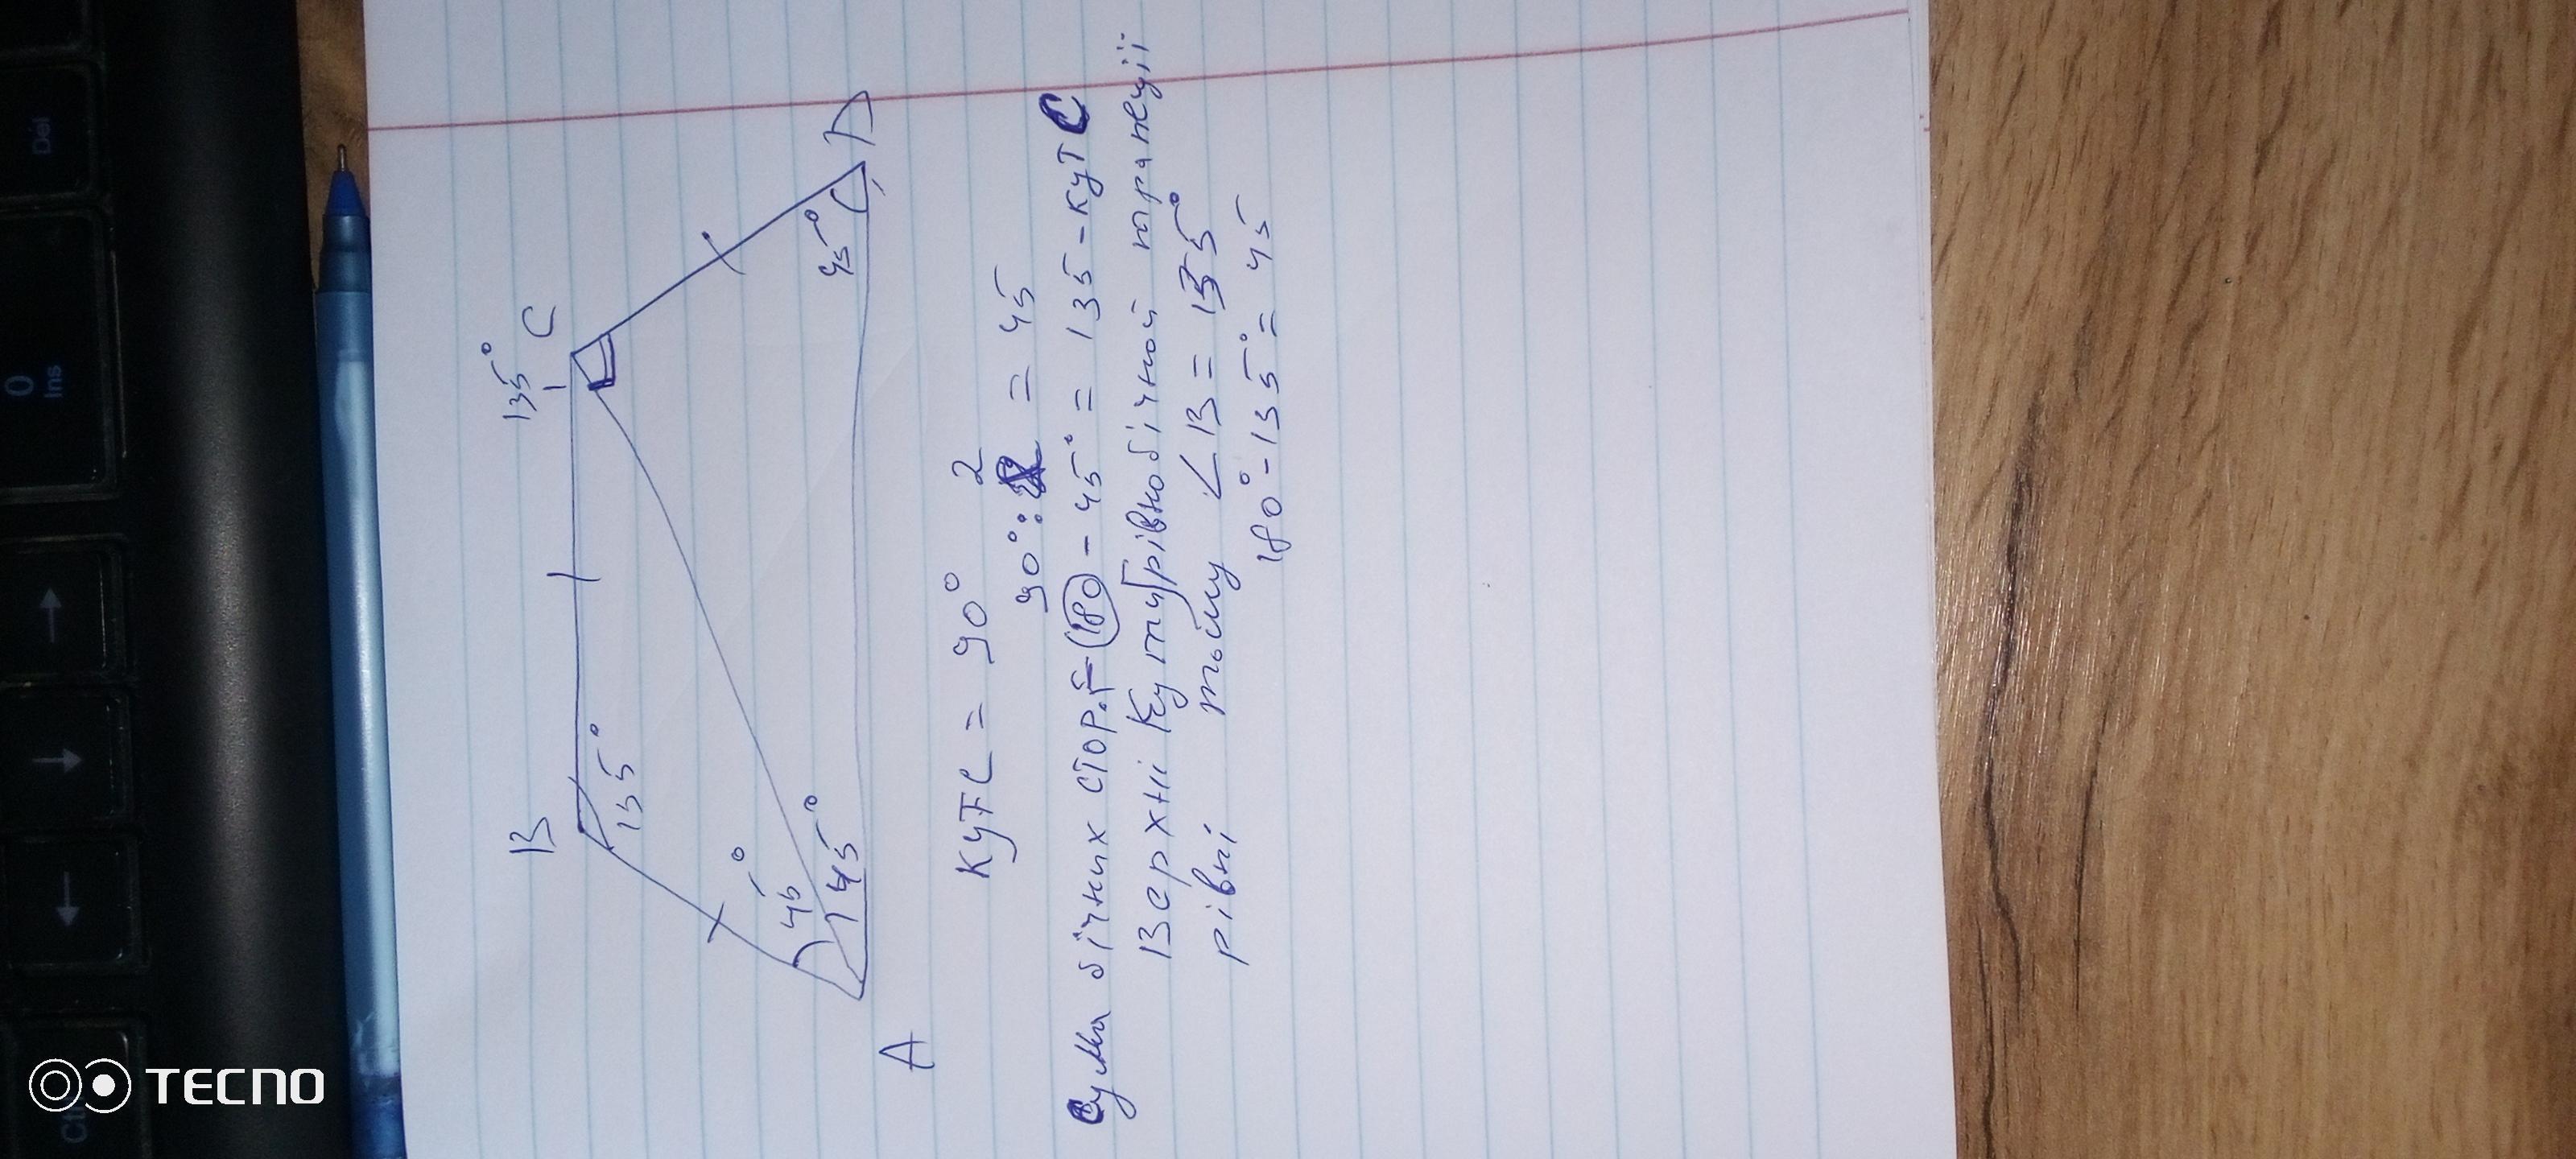 B
C
135°
135°
45°
45°
45°
A
D
кут C = 90°
2
90°: = 45
Сума бічних стор. = 180 - 45° = 135 - кут C
Верхні кути рівнобічной трапеції
рівні тому <B = 135°
180° - 135° = 45
TECNO
0
Ins
Del